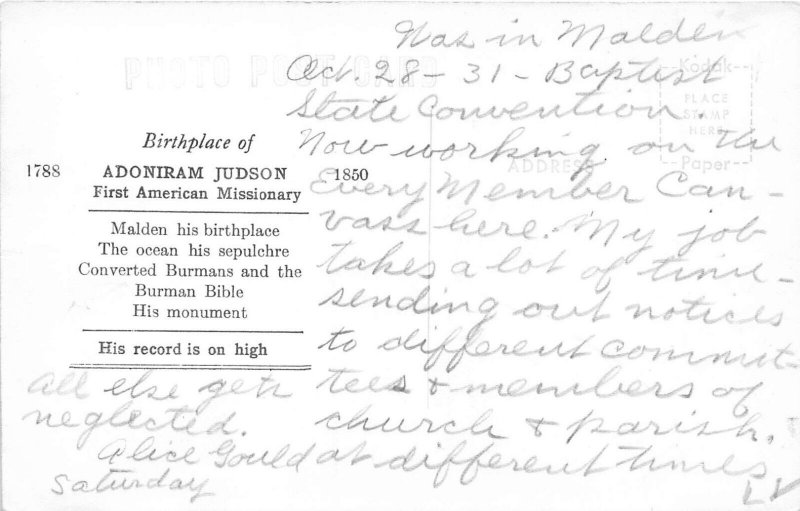 PHOTO POST CARD
Birthplace of
1788 ADONIRAM JUDSON 1850
First American Missionary
Malden his birthplace
The ocean his sepulchre
Converted Burmans and the
Burman Bible
His monument
His record is on high
Kodak
PLACE
STAMP
HERE
Paper
ADDRESS
Was in Malden
Oct. 28 - 31 - Baptist
State Convention.
Now working on the
Every Member Can-
vass here. My job
takes a lot of time -
sending out notices
to different commit-
tees & members of
church & parish.
at different times
All else gets
neglected.
Alice Gould
Saturday